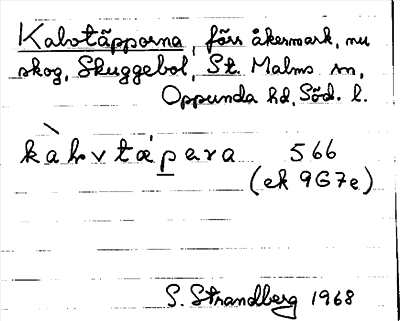 Kalvtäpporna, förr åkermark, nu
skog, Skuggebol, St. Malms sn,
Oppunda hd, Söd. l.
kàlvtæ̀para 566
(ek 9G7e)
S. Strandberg 1968